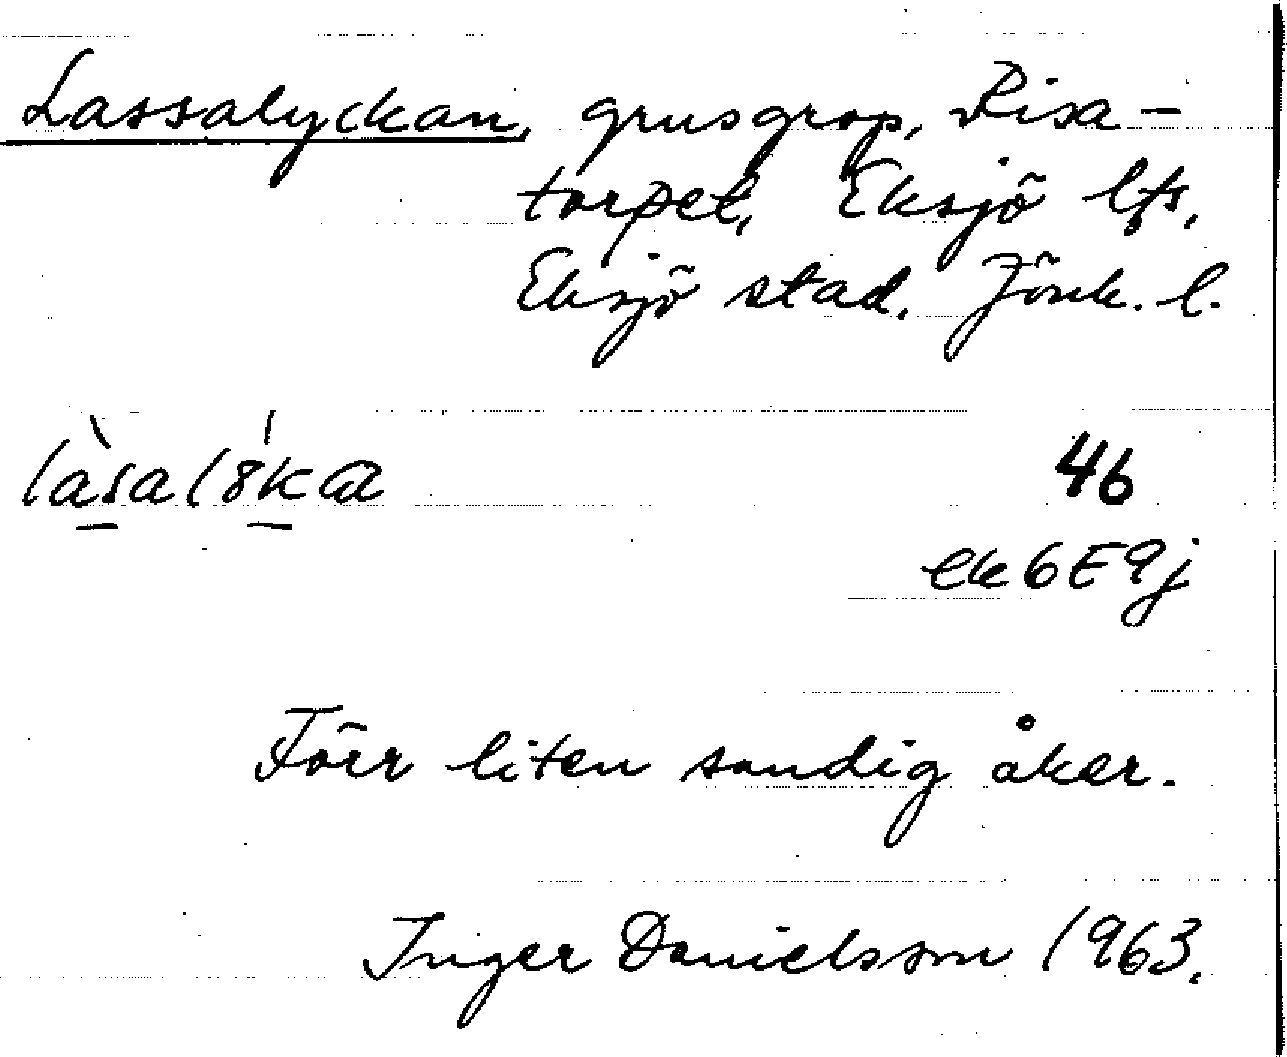 Lassalyckan, grusgrop, Risa-
torpet, Eksjö lfs.
Eksjö stad. Jönk. l.
46
ek 6E9j
Förr liten sandig åker.
Inger Danielsson 1963.